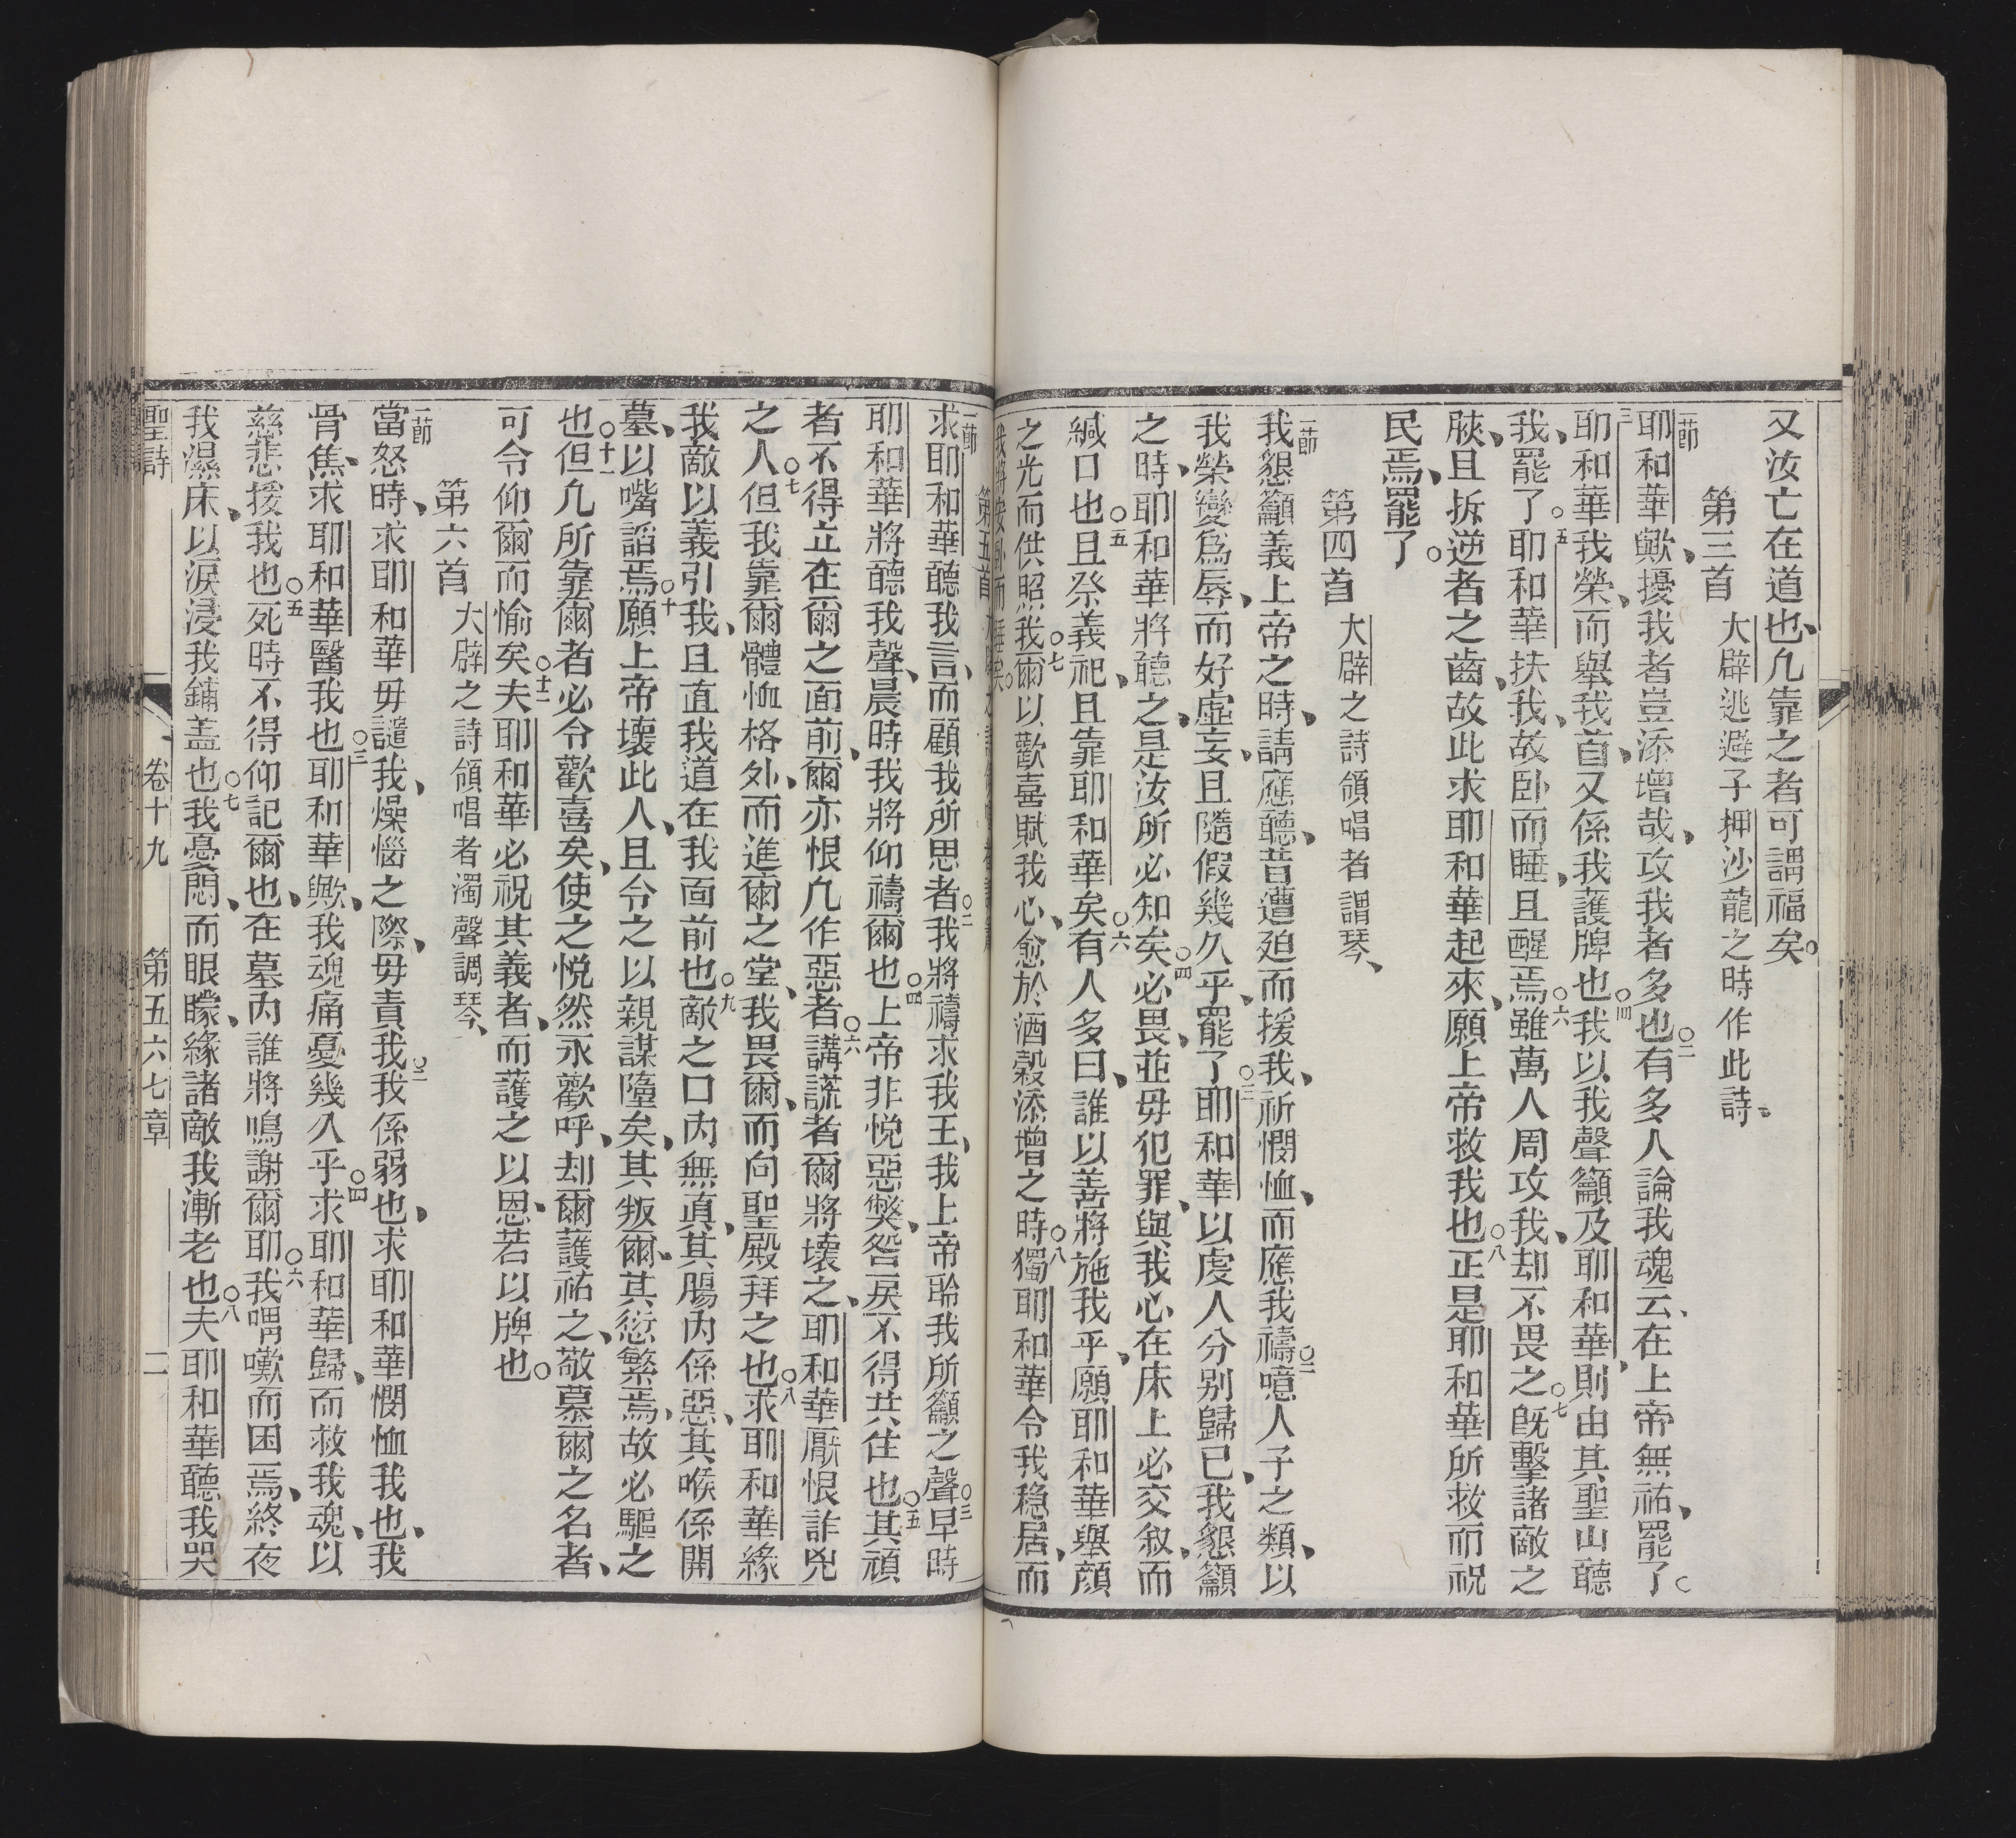 又汝亡在道也、凢靠之者可謂福矣。
第三首 大辟逃避子押沙龍之時作此詩、
一節耶和華歟、擾我者豈添增哉、攻我者多也○二有多多人論我魂云、在上帝無祐、罷了○
三耶和華我榮、而舉我首、又係我護牌也○四我以我聲籲及耶和華、則由其聖山聽
我、罷了○五耶和華扶我、故卧而睡、且醒焉○六雖萬人周攻我、却不畏之○七旣擊諸敵之
腴、且拆逆者之齒、故此求耶和華起來、願上帝救我也○八正是耶和華所救而祝
民焉、罷了○
第四首 大辟之詩領唱者謂琴、
一節我懇籲義上帝之時、請應聽、昔遭廹而援我、祈憫恤、而應我禱○二噫人子之類、以
我榮變爲辱、而好虛妄、且隨假幾久乎、罷了○三耶和華以虔人分别歸己、我懇籲
之時、耶和華將聽之、是汝所必知矣○四必畏、並毋犯罪、與我心在床上必交叙、而
緘口也○五且祭義祀、且靠耶和華矣○六有人多曰、誰以善將施我乎、願耶和華舉顔
之光而供照我○七爾以歡喜賦我心、愈於酒穀添增之時○八獨耶和華令我穏居、而
我將安卧而睡矣。
第五首
一節求耶和華聽我言、而顧我所思者○二我將禱求我王、我上帝聆我所籲之聲○三早時
耶和華將聽我聲、晨時我將仰禱爾也○四上帝非悦惡獘、咎戾不得共住也○五其頑
者不得立在爾之面前、爾亦恨凢作惡者○六講謊者爾將壞之、耶和華厭恨詐兇
之人○七但我靠爾體恤格外、而進爾之堂、我畏爾、而向聖殿拜之也○八求耶和華緣
我敵以義引我、且直我道在我面前也○九敵之口內無真、其腸內係惡、其喉係開
墓、以嘴謟焉○十願上帝壞此人、且令之以親謀墮矣、其叛爾、其愆繁焉、故必驅之
也○十一但凢所靠爾者必令歡喜矣、使之悦然永歡呼、却爾護祐之、敬慕爾之名者、
可令仰爾而愉矣○十二夫耶和華必祝其義者、而護之以恩、若以牌也○
第六首 大辟之詩領唱者濁聲調琴、
一節當怒時、求耶和華毋譴我、燥惱之際、毋責我○二我係弱也、求耶和華憫恤我也、我
骨焦、求耶和華醫我也○三耶和華歟、我魂痛憂幾久乎○四求耶和華歸、而救我魂、以
慈悲援我也○五死時不得仰記爾也、在墓內誰將鳴謝爾耶○六我喟嘆而困焉、終夜
我濕床、以淚浸我鋪盖也○七我憂悶、而眼矇、緣諸敵我漸老也○八夫耶和華聽我哭
聖詩 卷十九 第五六七章 二